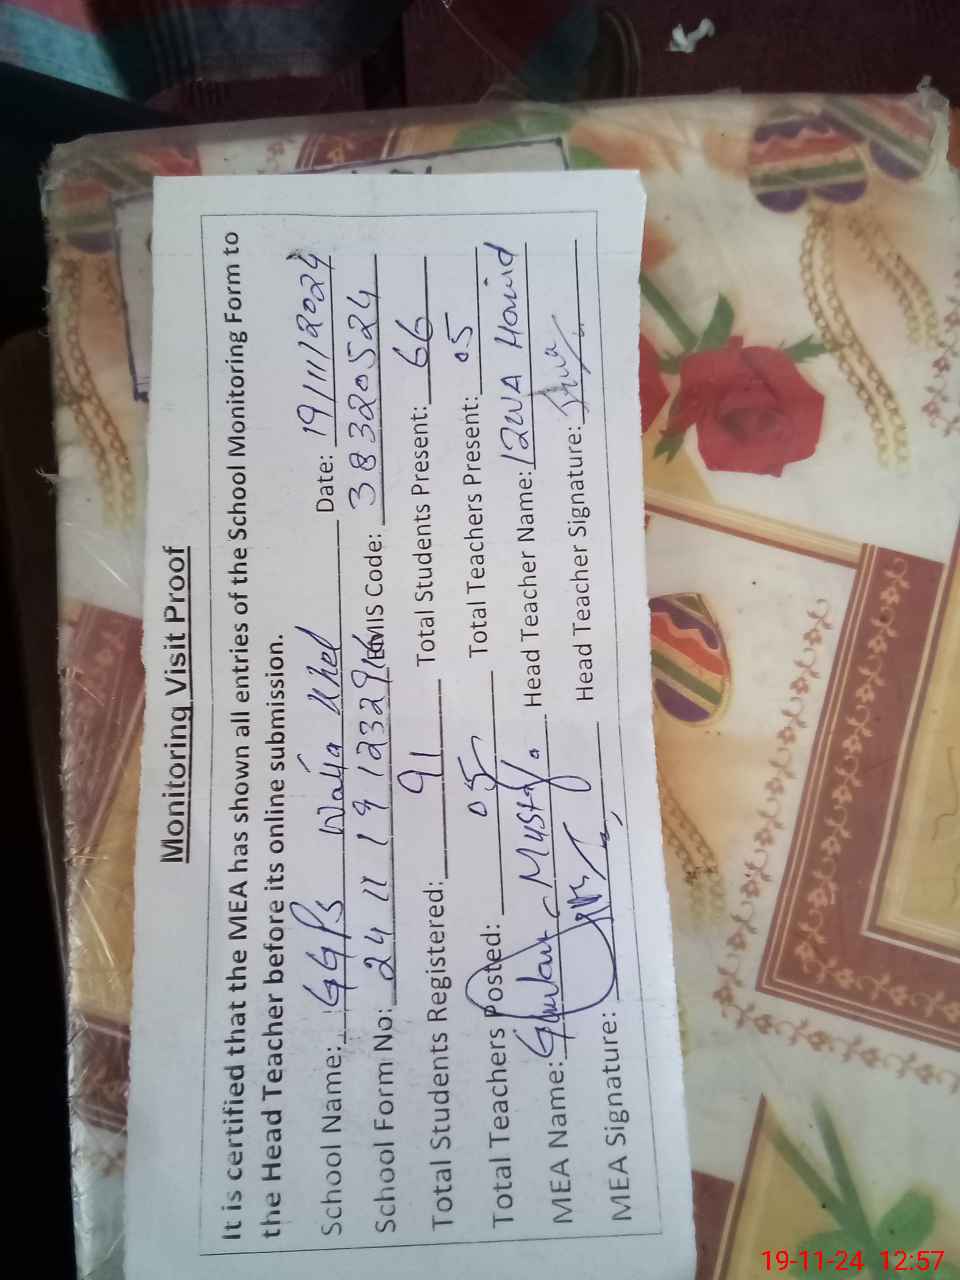 Monitoring Visit Proof
It is certified that the MEA has shown all entries of the School Monitoring Form to
the Head Teacher before its online submission.
School Name: GGPS Wazir Khel Date: 19/11/2024
School Form No: 24 11 19 1233296 EMIS Code: 38320524
Total Students Registered: 91 Total Students Present: 66
Total Teachers Posted: 05 Total Teachers Present: 05
MEA Name: Mustafa Head Teacher Name: Hamid
MEA Signature: Head Teacher Signature:
19-11-24 12:57